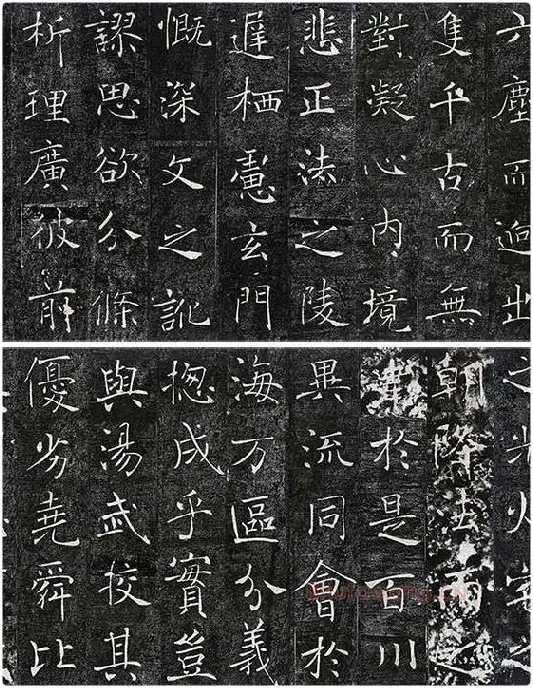 六塵而迥出
隻千古而無
對凝心內境
悲正法之陵
遲栖慮玄門
慨深文之訛
謬思欲分條
析理廣彼前
之光火宅之
朝降法雨之
澤於是百川
異流同會於
海万區分義
揔成乎實豈
與湯武挍其
優劣堯舜比